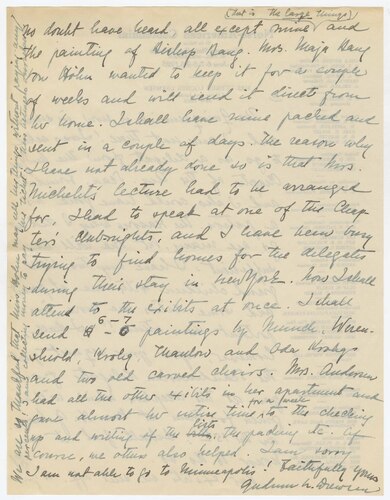 (that is the large things)
no doubt have heard all except mine and
the painting of Bishop Bang. Mrs. Maja Bang
von Hohn wanted to keep it for a couple
of weeks and will send it direct from
her home. I shall have mine packed and
sent in a couple of days. The reason why
I have not already done so is that Mrs.
Michelet's lecture had to be arranged
for, I had to speak at one of the Chap-
ter's clubnights, and I have been busy
trying to find homes for the delegates
during their stay in New York. Now I shall
attend to the exibits at once. I shall
send 6-7 paintings by Munch, Weren-
skiold, Krohg, Thaulow and Oda Krohg
and two old carved chairs. Mrs. Andersen
had all the other exibits in her apartment and
gave almost her entire time for a week to the checking
up and writing of the lists, the packing etc. Of
course, we others also helped. I am sorry
I am not able to go to Minneapolis! Faithfully yours
Gudrun L. Drewsen
We are so thankful that Mrs.